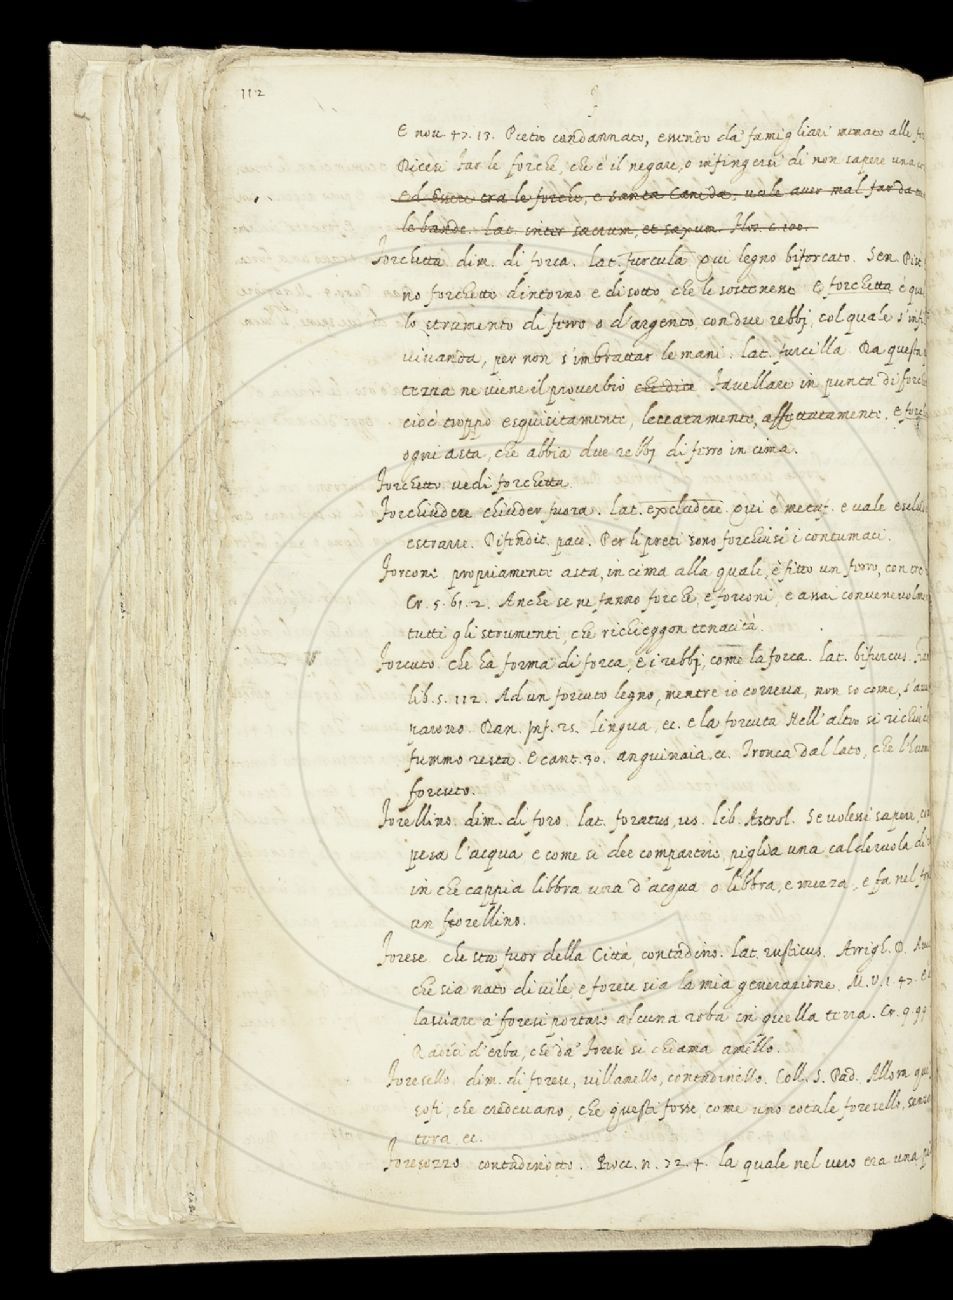 112
E nou. 47. 13. Pietro condannato, essendo da' famigliari menato alle
Dicesi far le forche, che è il negare, o infingersi di non sapere una
ed Essere tra le forche, e santa Candida, uale auer mal far da
le bande. Lat. inter sacrum, et saxum. Flos. c. 100.
Forchetta dim. di forca. lat. furcula Qui legno biforcato. Sen. Pist.
no forchette dintorno e di sotto che le sostenens E forchetta è que
lo strumento di ferro o d'argento con due rebbj, col quale s'infi
uiuanda, per non s'imbrattar le mani. lat. furcilla Da questa
terza ne uiene il prouerbio che dice Fauellare in punta di forch
cioè troppo esquisitamente, leccatamente, affettatamente, e forch
ogni asta, che abbia due rebbj di ferro in cima.
Forchetto uedi forchetta.
Forchiudere chiuder fuora. Lat. excludere. Qui è metaf. e uale esclud
estrarre. Difendit. pace. Per li preti sono forchiusi i contumaci.
Forcone propriamente asta, in cima alla quale è fitto un ferro, con tre
Cr. 5. 61. 2. Anche se ne fanno forche, e forconi, e assai conueneuolme
tutti gli strumenti, che richieggon tenacità.
Forcuto che ha forma di forca, e i rebbj, come la forca. lat. bifurcus.
lib. s. 112. Ad un forcuto legno, mentre io correua, non so come, s'auu
parono. Dan. Inf. 25. Lingua, ec. e la forcuta Nell'altro si richiud
fummo resta. E cant. 30. anguinaia ec. Tronca dal lato, che l'huomo
forcuto.
Forellino. dim. di foro. lat. foratus, us. lib. Astrol. Se uolessi sapere,
pesa l'acqua e come si dee compartire, piglia una calderuola di
in che cappia libbra una d'acqua o libbra, e mezza, e fa nel
un forellino.
Forese che sta fuor della Città, contadino. lat. rusticus. Arrigh. D.
che sia nato di uile, e forese sia la mia generazione. M. V. 1. 47.
lasciare a' foresi portare alcuna roba in quella terra. Cr. 9. 99
Radici d'erba, che da' Foresi si chiama amello.
Foresello. dim. di forese, uillanello, contadinello. Coll. S. Pad. Allora que
sofi, che credeuano, che questi fosse, come uno cotale foresello, senza
tura, ec.
Foresozzo contadinotto. Bocc. n. 72. 4. la quale nel uero era una